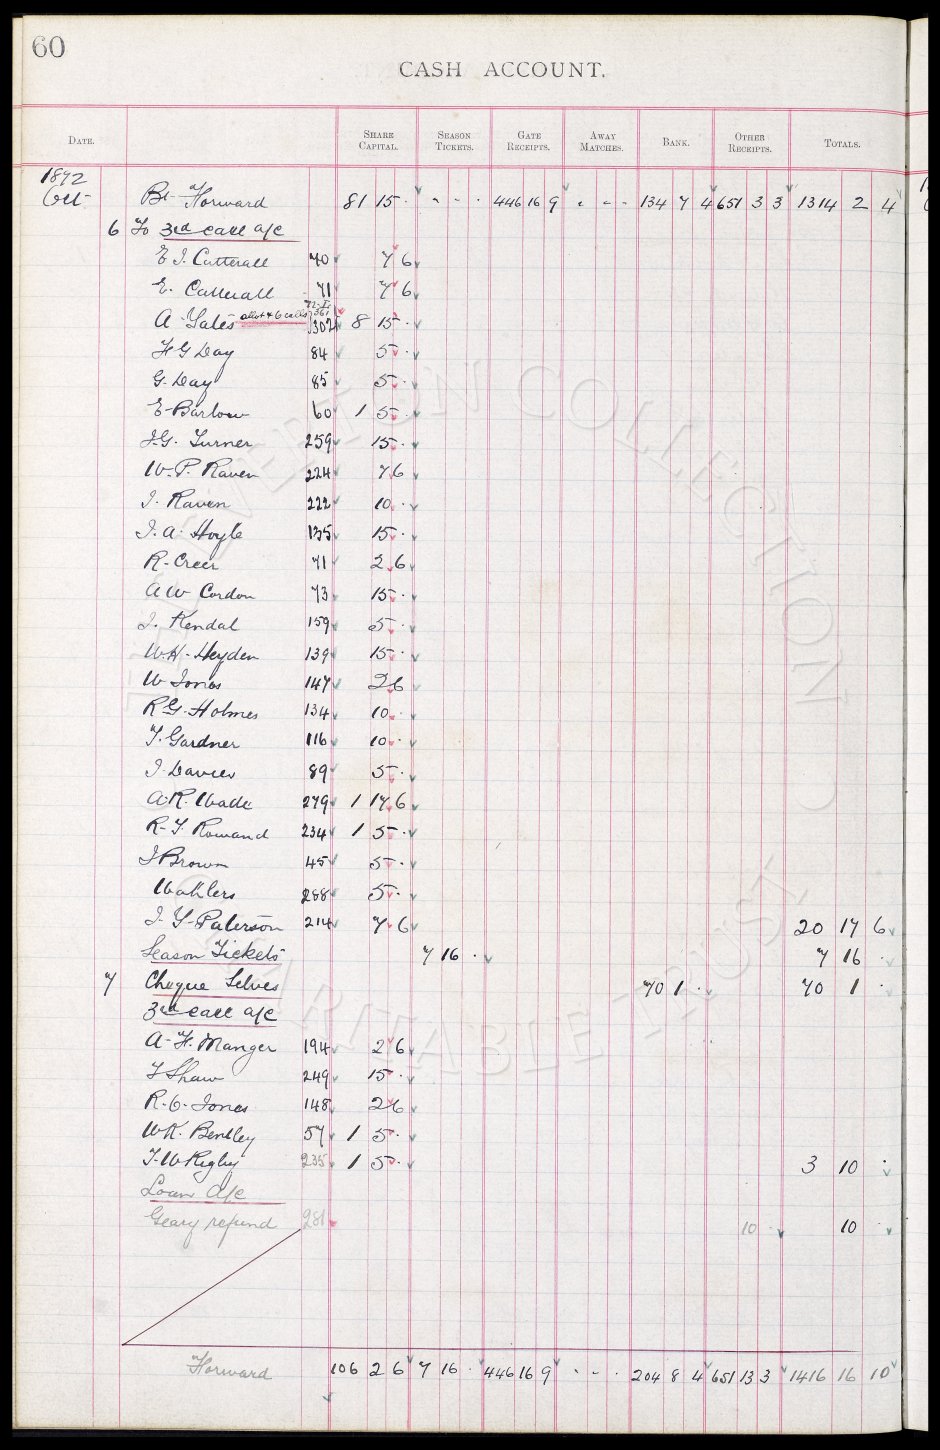 60
CASH ACCOUNT.
DATE. SHARE CAPITAL. SEASON TICKETS. GATE RECEIPTS. AWAY MATCHES. BANK. OTHER RECEIPTS. TOTALS.
1892
Oct Bt Forward 81 15 · - - · 446 16 9 · - - 134 7 4 651 3 3 1314 2 4
6 To 3rd call a/c
E. J. Catterall 70 7 6
E. Catterall 71 7 6
A. Yates allot & 6 calls 361 302 8 15 ·
H G Day 84 5 ·
G. Day 85 5 ·
E Barlow 60 1 5 ·
J. G. Turner 259 15 ·
W. P. Raven 224 7 6
J. Raven 222 10 ·
J. A. Hoyle 135 15 ·
R. Creer 71 2 6
A W Cordon 73 15 ·
J. Kendal 159 5 ·
W. H. Heyden 139 15 ·
W Jones 147 2 6
R G. Holmes 134 10 ·
T. Gardner 116 10 ·
J. Davies 89 5 ·
A. R. Wade 279 1 17 6
R. T. Rowand 234 1 5 ·
J Brown 45 5 ·
Wahlers 288 5 ·
J. Y. Paterson 214 7 6 20 17 6
Season Tickets 7 16 · 7 16 ·
7 Cheque Selves 70 1 · 70 1 ·
3rd call a/c
A. H. Manger 194 2 6
T Shaw 249 15 ·
R. O. Jones 148 2 6
W K. Bentley 57 1 5 ·
T. W Rigby 235 1 5 · 3 10 ·
Loan a/c
Geary refund 281 10 · 10 ·
Forward 106 2 6 7 16 · 446 16 9 · - · 204 8 4 651 13 3 1416 16 10
EVERTON COLLECTION
CHARITABLE TRUST